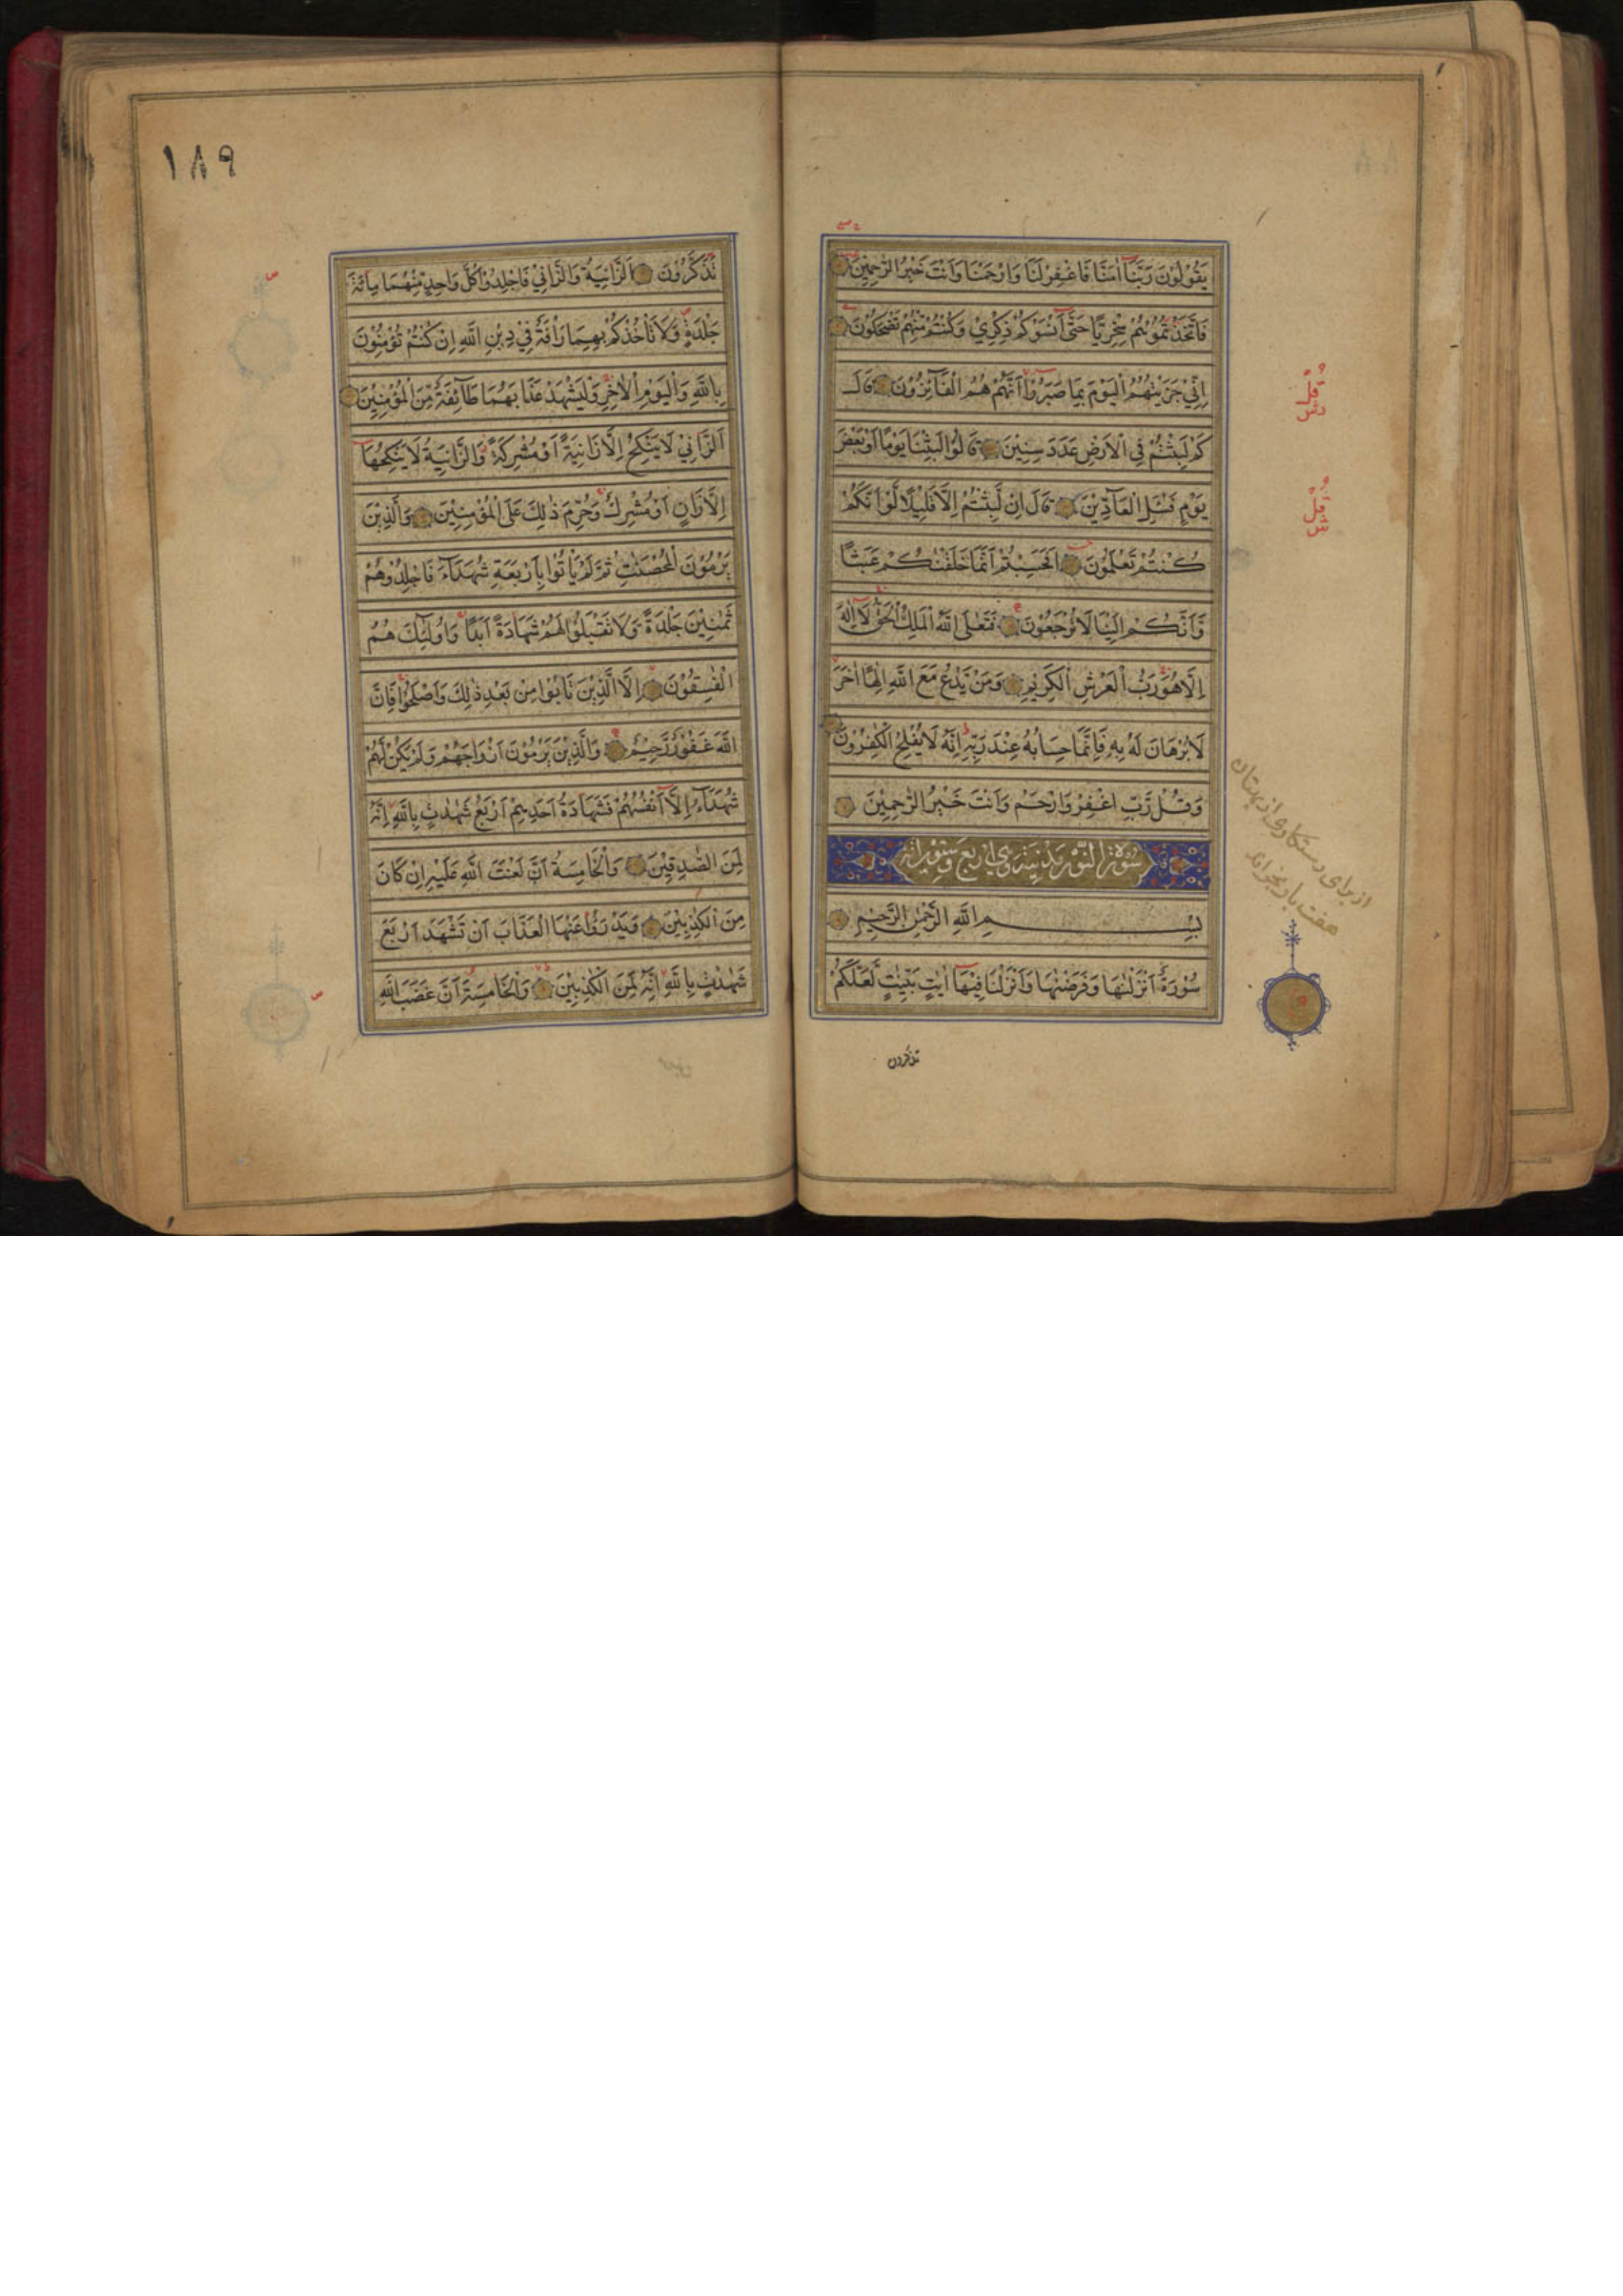 يَقُولُونَ رَبَّنَا اٰمَنَّا فَاغْفِرْ لَنَا وَارْحَمْنَا وَاَنْتَ خَيْرُ الرّٰحِمِيْنَ
فَاتَّخَذْتُمُوْهُمْ سِخْرِيًّا حَتّٰى اَنْسَوْكُمْ ذِكْرِيْ وَكُنْتُمْ مِّنْهُمْ تَضْحَكُوْنَ
اِنِّيْ جَزَيْتُهُمُ الْيَوْمَ بِمَا صَبَرُوْا اَنَّهُمْ هُمُ الْفَآئِزُوْنَ قَالَ
كَمْ لَبِثْتُمْ فِى الْاَرْضِ عَدَدَ سِنِيْنَ قَالُوْا لَبِثْنَا يَوْمًا اَوْ بَعْضَ
يَوْمٍ فَسْـَٔلِ الْعَآدِّيْنَ قَالَ اِنْ لَّبِثْتُمْ اِلَّا قَلِيْلًا لَّوْ اَنَّكُمْ
كُنْتُمْ تَعْلَمُوْنَ اَفَحَسِبْتُمْ اَنَّمَا خَلَقْنٰكُمْ عَبَثًا
وَّاَنَّكُمْ اِلَيْنَا لَا تُرْجَعُوْنَ فَتَعٰلَى اللّٰهُ الْمَلِكُ الْحَقُّ لَا اِلٰهَ
اِلَّا هُوَ رَبُّ الْعَرْشِ الْكَرِيْمِ وَمَنْ يَّدْعُ مَعَ اللّٰهِ اِلٰهًا اٰخَرَ
لَا بُرْهَانَ لَهُ بِهٖ فَاِنَّمَا حِسَابُهُ عِنْدَ رَبِّهٖ اِنَّهُ لَا يُفْلِحُ الْكٰفِرُوْنَ
وَقُلْ رَّبِّ اغْفِرْ وَارْحَمْ وَاَنْتَ خَيْرُ الرّٰحِمِيْنَ
سُوْرَة النُّوْر مَدَنِيَّة وَهِيَ اَرْبَع وَسِتُّوْنَ اٰيَة
بِسْمِ اللّٰهِ الرَّحْمٰنِ الرَّحِيْمِ
سُوْرَةٌ اَنْزَلْنٰهَا وَفَرَضْنٰهَا وَاَنْزَلْنَا فِيْهَا اٰيٰتٍ بَيِّنٰتٍ لَّعَلَّكُمْ
تذكرون
از برای رستگاری از بهتان
هفت بار بخواند
١٨٩
تَذَكَّرُوْنَ اَلزَّانِيَةُ وَالزَّانِيْ فَاجْلِدُوْا كُلَّ وَاحِدٍ مِّنْهُمَا مِائَةَ
جَلْدَةٍ وَّلَا تَاْخُذْكُمْ بِهِمَا رَاْفَةٌ فِيْ دِيْنِ اللّٰهِ اِنْ كُنْتُمْ تُؤْمِنُوْنَ
بِاللّٰهِ وَالْيَوْمِ الْاٰخِرِ وَلْيَشْهَدْ عَذَابَهُمَا طَآئِفَةٌ مِّنَ الْمُؤْمِنِيْنَ
اَلزَّانِيْ لَا يَنْكِحُ اِلَّا زَانِيَةً اَوْ مُشْرِكَةً وَّالزَّانِيَةُ لَا يَنْكِحُهَا
اِلَّا زَانٍ اَوْ مُشْرِكٌ وَحُرِّمَ ذٰلِكَ عَلَى الْمُؤْمِنِيْنَ وَالَّذِيْنَ
يَرْمُوْنَ الْمُحْصَنٰتِ ثُمَّ لَمْ يَاْتُوْا بِاَرْبَعَةِ شُهَدَآءَ فَاجْلِدُوْهُمْ
ثَمٰنِيْنَ جَلْدَةً وَّلَا تَقْبَلُوْا لَهُمْ شَهَادَةً اَبَدًا وَاُولٰٓئِكَ هُمُ
الْفٰسِقُوْنَ اِلَّا الَّذِيْنَ تَابُوْا مِنْ بَعْدِ ذٰلِكَ وَاَصْلَحُوْا فَاِنَّ
اللّٰهَ غَفُوْرٌ رَّحِيْمٌ وَالَّذِيْنَ يَرْمُوْنَ اَزْوَاجَهُمْ وَلَمْ يَكُنْ لَّهُمْ
شُهَدَآءُ اِلَّا اَنْفُسُهُمْ فَشَهَادَةُ اَحَدِهِمْ اَرْبَعُ شَهٰدٰتٍ بِاللّٰهِ اِنَّهُ
لَمِنَ الصّٰدِقِيْنَ وَالْخَامِسَةُ اَنَّ لَعْنَتَ اللّٰهِ عَلَيْهِ اِنْ كَانَ
مِنَ الْكٰذِبِيْنَ وَيَدْرَؤُا عَنْهَا الْعَذَابَ اَنْ تَشْهَدَ اَرْبَعَ
شَهٰدٰتٍ بِاللّٰهِ اِنَّهُ لَمِنَ الْكٰذِبِيْنَ وَالْخَامِسَةَ اَنَّ غَضَبَ اللّٰهِ